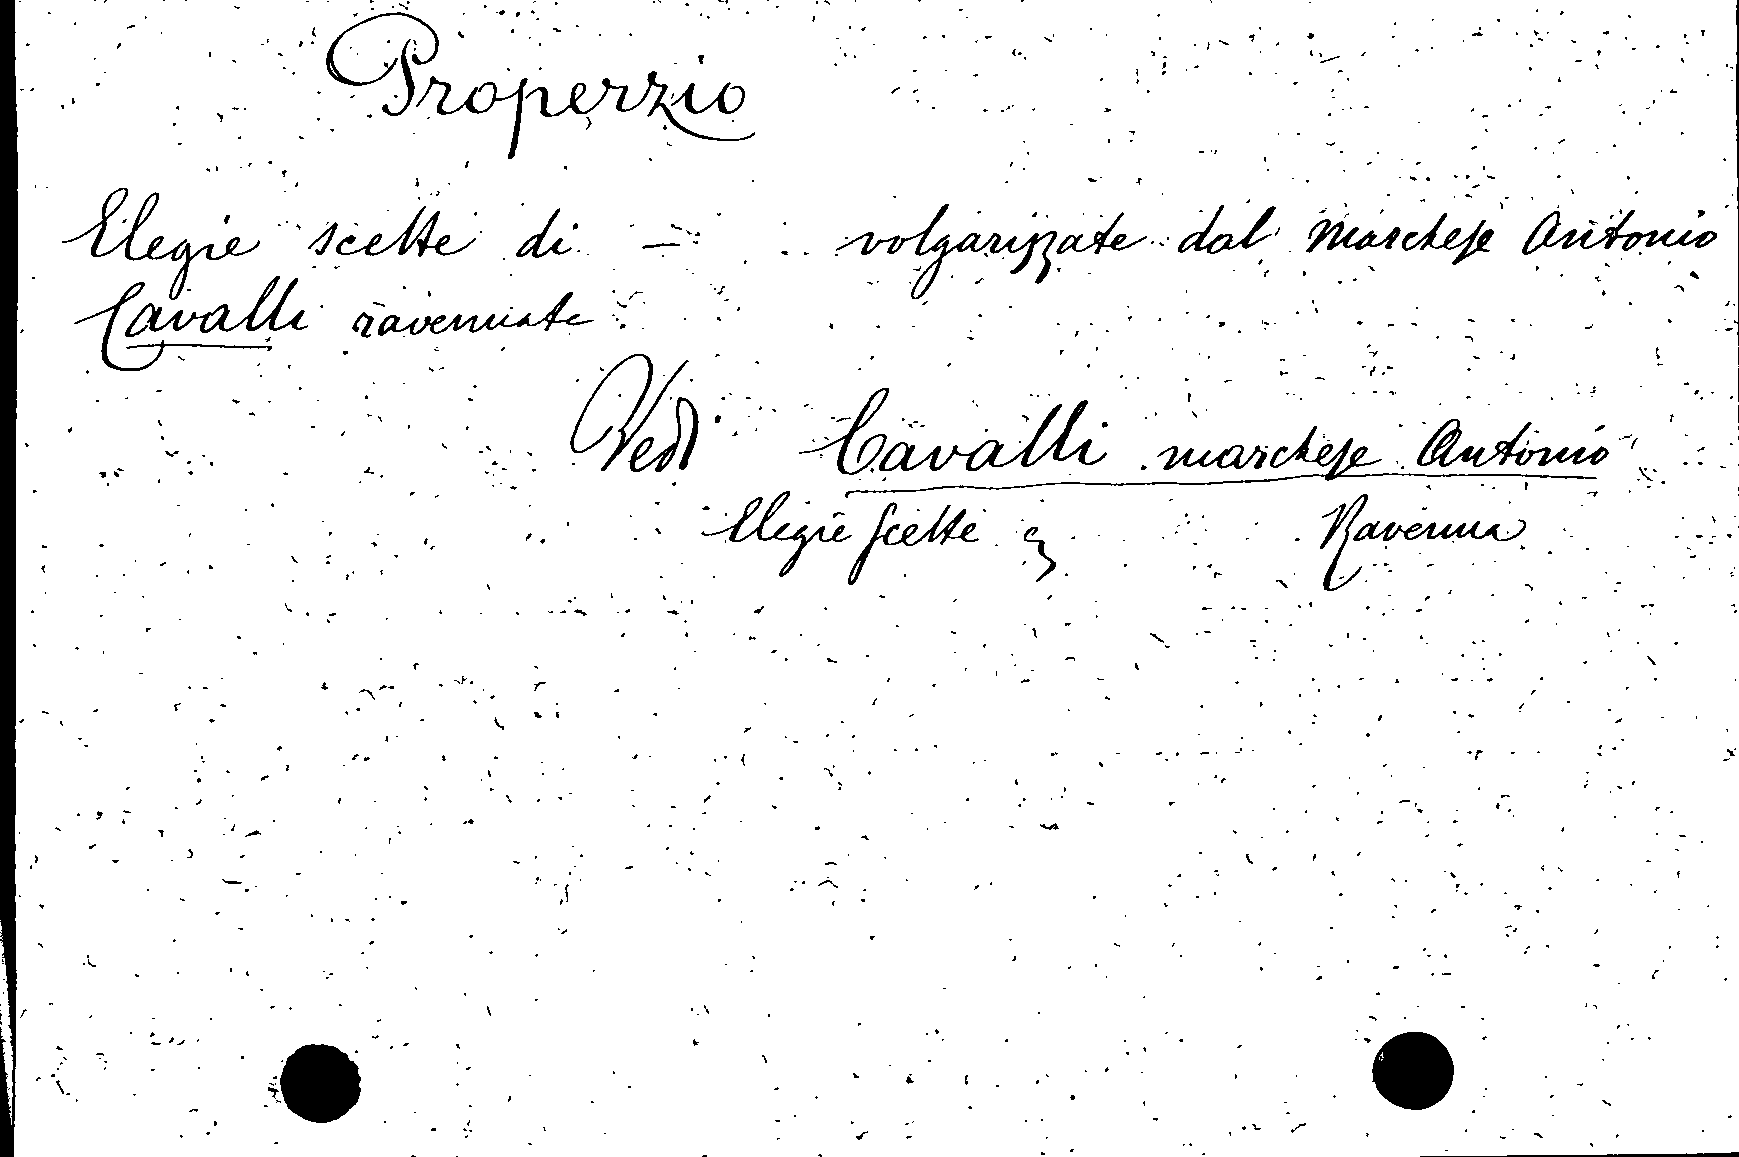 Properzio
Elegie scelte di — volgarizzate dal Marchese Antonio
Cavalli ravennate
Vedi Cavalli marchese Antonio
Elegie scelte Ravenna